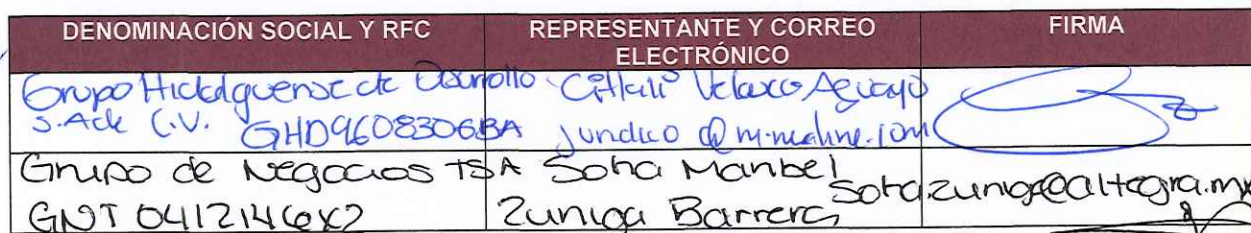 DENOMINACIÓN SOCIAL Y RFC
REPRESENTANTE Y CORREO
ELECTRÓNICO
FIRMA
Grupo Hidalguense de Desarrollo
S.A de C.V. GHD9608306BA
Citlali Velasco Aguayo
juridico@m-
Grupo de Negocios TSA
GNT0412146X2
Sotia Maribel
Zuniga Barrera